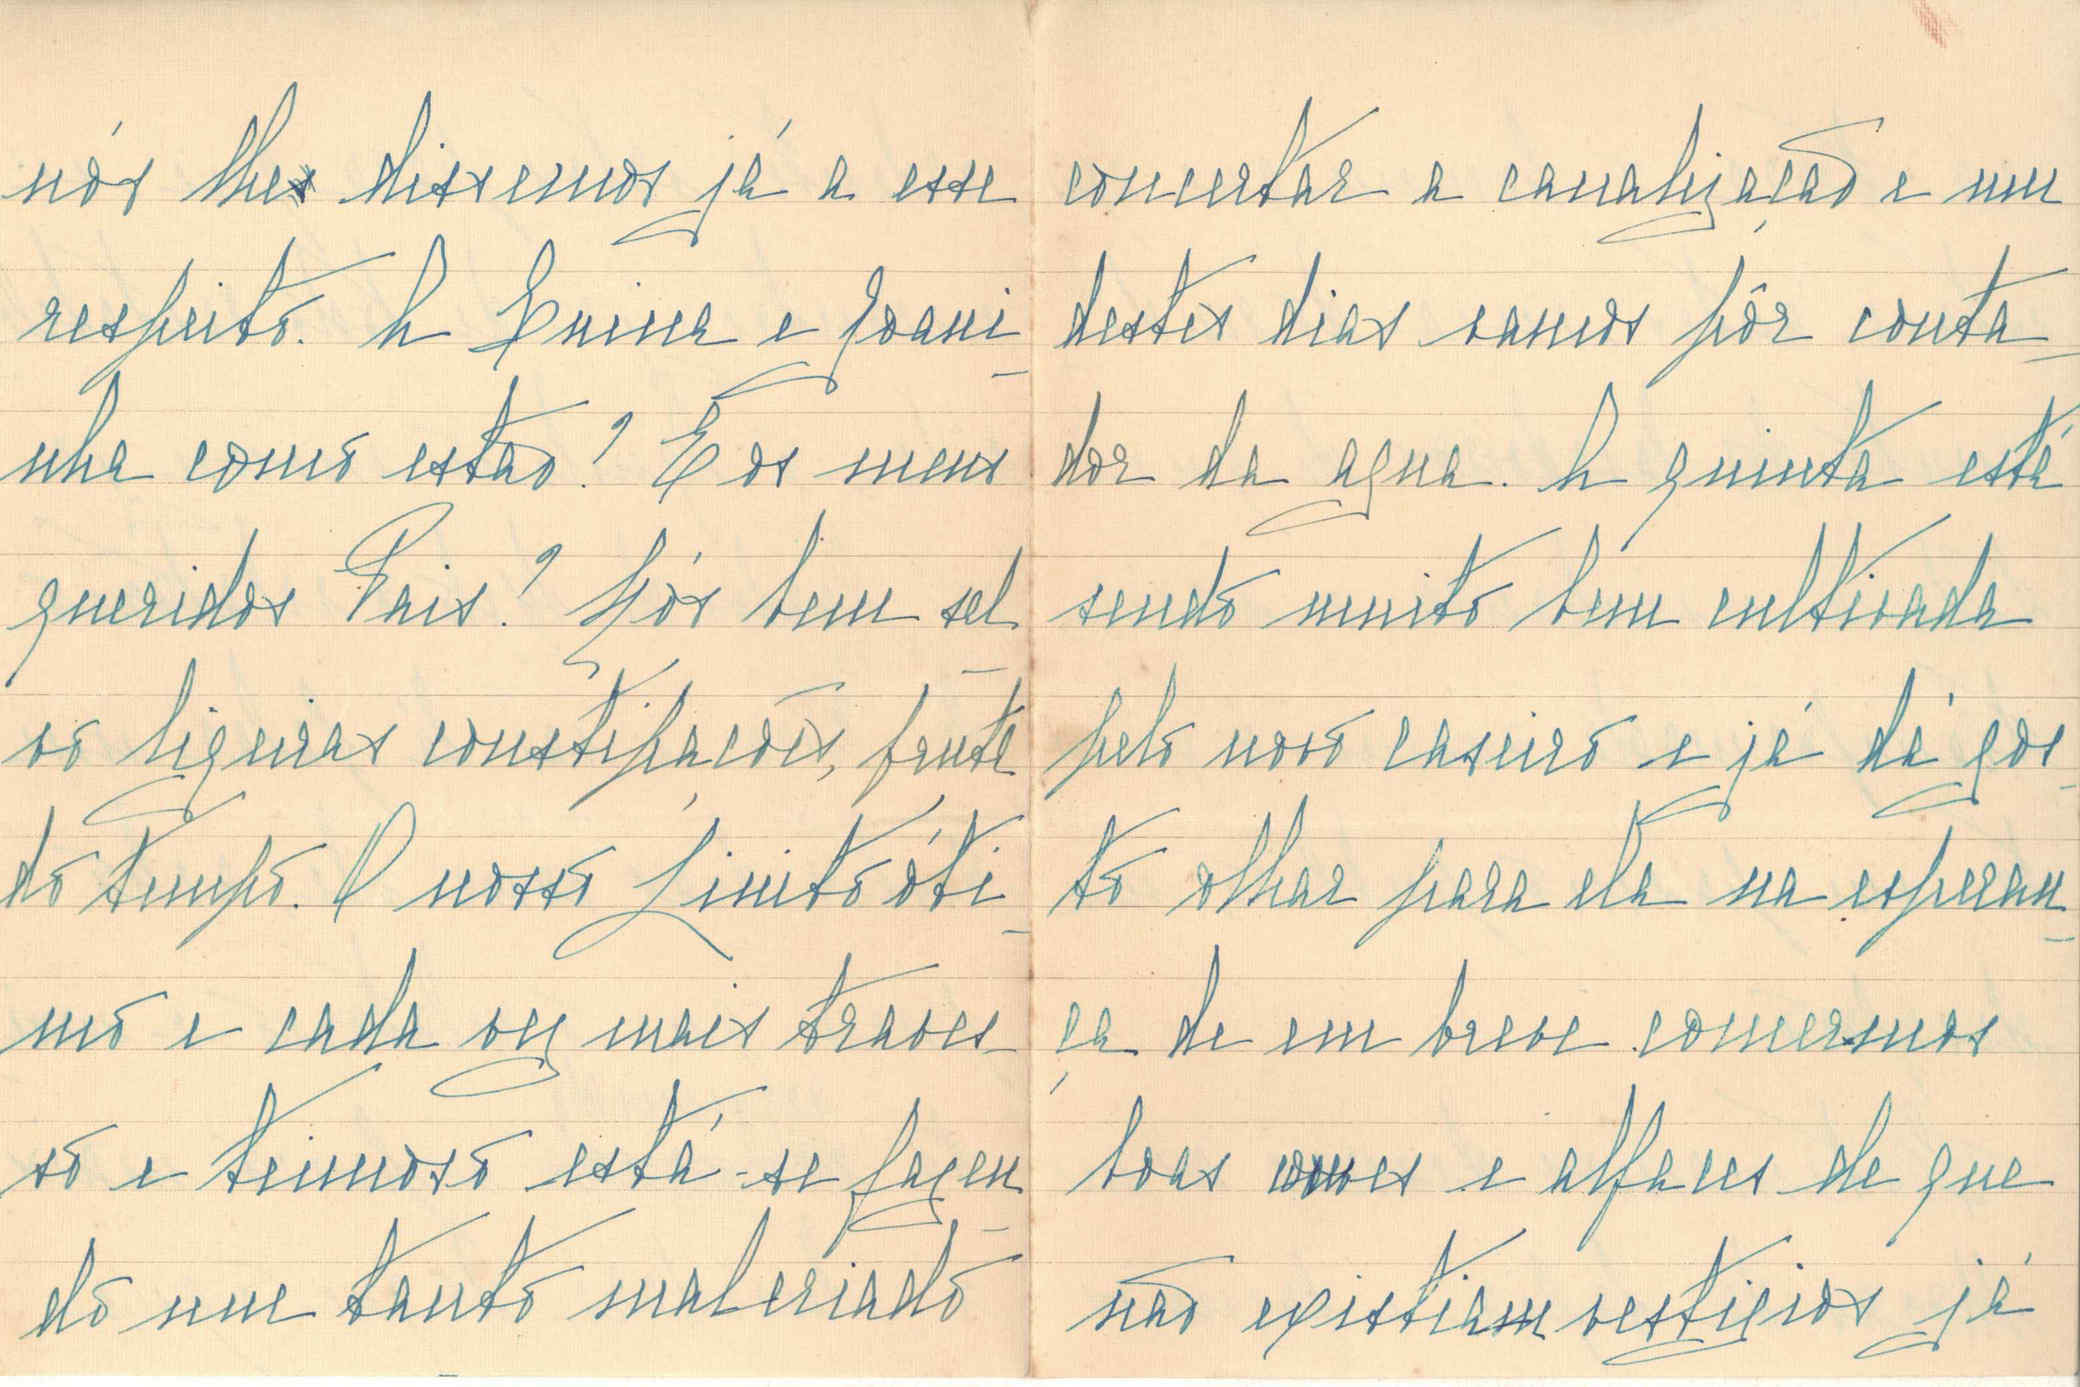 nós lhes dissemos já a esse
respeito. A Guina e Joani-
nha como estão? E os meus
queridos Pais? Nós bem sal-
vo ligeiras constipações, fruto
do tempo. O nosso Zinito óti-
mo e cada vez mais traves-
so e teimoso está-se fazen-
do um tanto malcriado
concertar a canalização e um
destes dias vamos pôr conta-
dor da agua. A quinta está
sendo muito bem cultivada
pelo novo caseiro e já dá gos-
to olhar para ela na esperan-
ça de em breve comermos
boas couves e alfaces de que
não existiam vestigios já